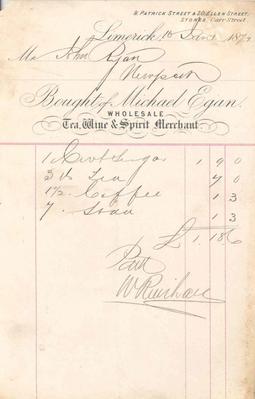 9, PATRICK STREET & 20, ELLEN STREET.
STORES Carr Street
Limerick 16 Jany 187
Mr John Ryan
Newport
Bought of Michael Egan.
WHOLESALE
Tea, Wine & Spirit Merchant.
1 Cwt Sugar 1 9 0
3 lb Tea 7 0
1 1/2 Coffee 1 3
7 Soda 1 3
£ 1 18 6
Paid